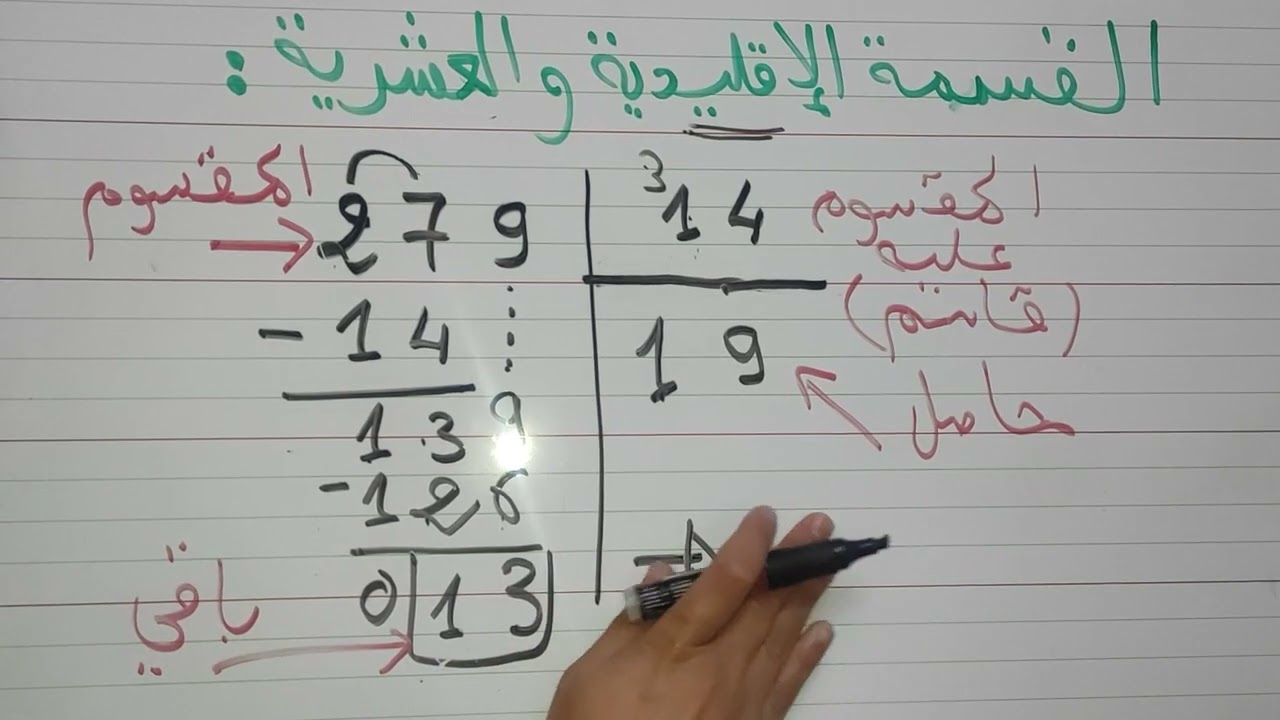 القسمة الإقليدية والعشرية :
المقسوم
279
3
14
المقسوم
عليه
(قاسم)
- 14
19
حاصل
139
- 126
013
باقي